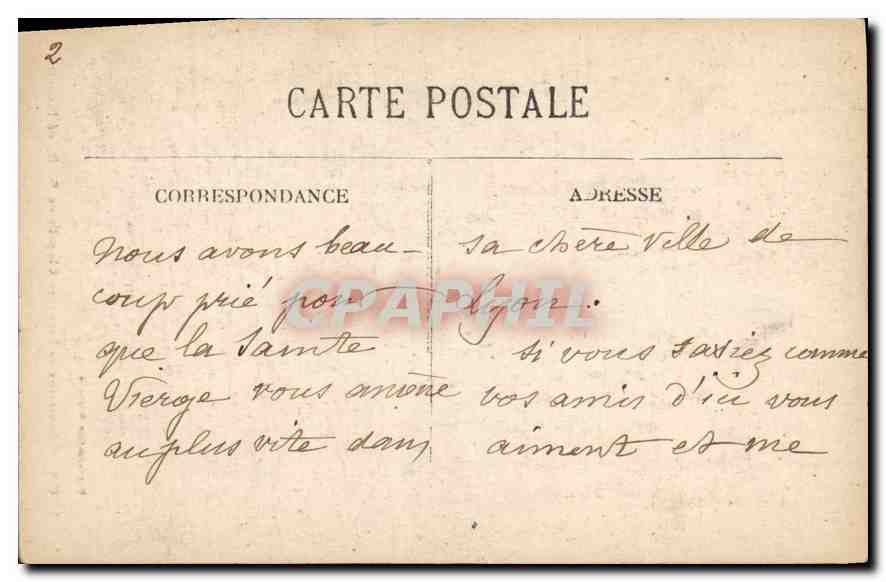 2
CARTE POSTALE
CORRESPONDANCE
nous avons beau-
coup prié pour
que la Sainte
Vierge vous amène
au plus vite dans
ADRESSE
sa chère ville de
Lyon.
si vous saviez comme
vos amis d'ici vous
aiment et me
CPAPHIL